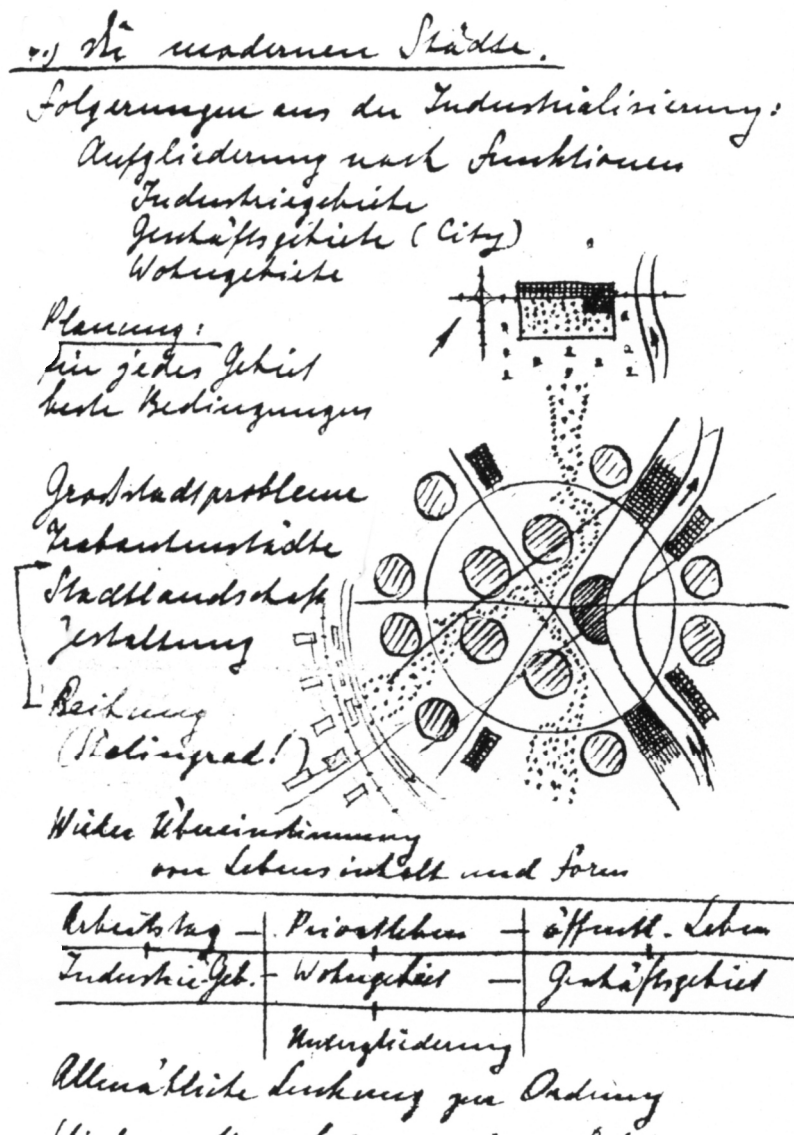 Die modernen Städte.
Folgerungen aus der Industrialisierung:
Aufgliederung nach Funktionen
Industriegebiete
Geschäftsgebiete (City)
Wohngebiete
Planung:
für jedes Gebiet
beste Bedingungen
Großstadtprobleme
Trabantenstädte
Stadtlandschaft
Gestaltung
Reihung
(Stalingrad!)
Wieder Übereinstimmung
von Lebensinhalt und Form
Arbeitstag – Privatleben – öffentl. Leben
Industrie-Geb. – Wohngebiet – Geschäftsgebiet
Untergliederung
Allmähliche Lenkung zur Ordnung